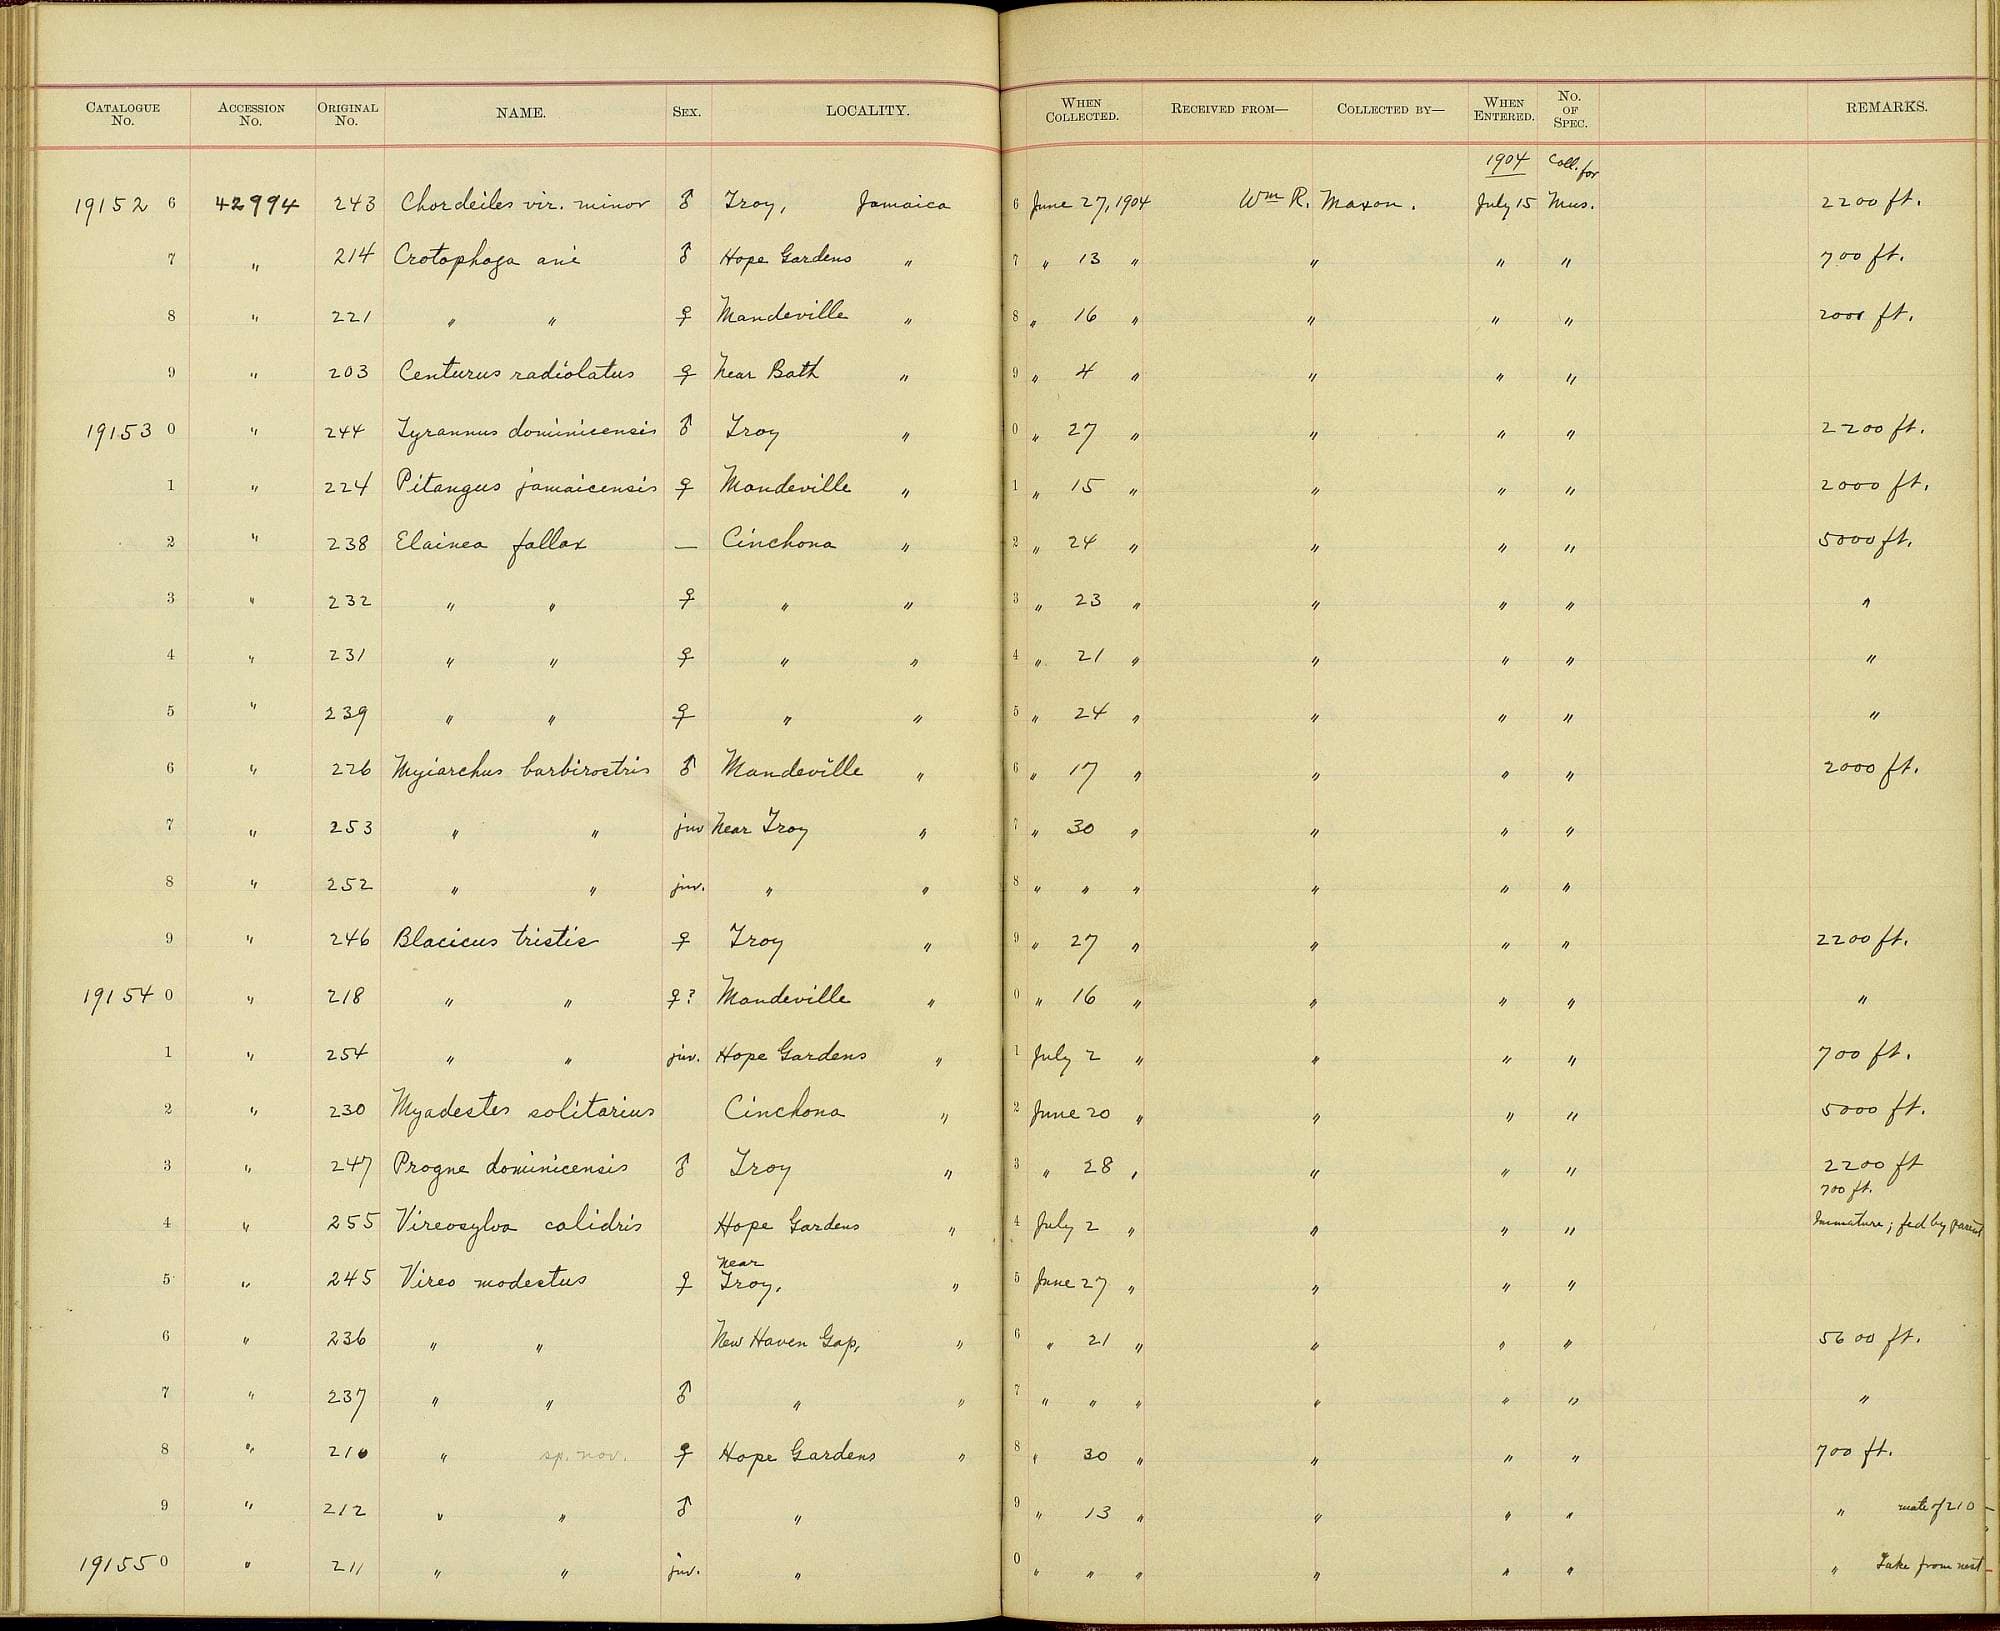 CATALOGUE No. ACCESSION No. ORIGINAL No. NAME. SEX. LOCALITY. WHEN COLLECTED. RECEIVED FROM— COLLECTED BY— WHEN ENTERED. No. OF SPEC. REMARKS.
1904 Coll. for
19152 6 42994 243 Chordeiles vir. minor ♂ Troy, Jamaica 6 June 27, 1904 Wm R. Maxon. July 15 Mus. 2200 ft.
7 " 214 Crotophaga ani ♂ Hope Gardens " 7 " 13 " " " " 700 ft.
8 " 221 " " ♀ Mandeville " 8 " 16 " " " " 2000 ft.
9 " 203 Centurus radiolatus ♀ Near Bath " 9 " 4 " " " "
19153 0 " 244 Tyrannus dominicensis ♂ Troy " 0 " 27 " " " " 2200 ft.
1 " 224 Pitangus jamaicensis ♀ Mandeville " 1 " 15 " " " " 2000 ft.
2 " 238 Elainea fallax — Cinchona " 2 " 24 " " " " 5000 ft.
3 " 232 " " ♀ " " 3 " 23 " " " " "
4 " 231 " " ♀ " " 4 " 21 " " " " "
5 " 239 " " ♀ " " 5 " 24 " " " " "
6 " 226 Myiarchus barbirostris ♂ Mandeville " 6 " 17 " " " " 2000 ft.
7 " 253 " " juv Near Troy " 7 " 30 " " " "
8 " 252 " " juv. " " 8 " " " " " "
9 " 246 Blacicus tristis ♀ Troy " 9 " 27 " " " " 2200 ft.
19154 0 " 218 " " ♀? Mandeville " 0 " 16 " " " " "
1 " 254 " " juv. Hope Gardens " 1 July 2 " " " " 700 ft.
2 " 230 Myadestes solitarius Cinchona " 2 June 20 " " " " 5000 ft.
3 " 247 Progne dominicensis ♂ Troy " 3 " 28 " " " " 2200 ft
700 ft.
4 " 255 Vireosylva calidris Hope Gardens " 4 July 2 " " " " Immature; fed by parent
near
5 " 245 Vireo modestus ♀ Troy. " 5 June 27 " " " "
6 " 236 " " New Haven Gap, " 6 " 21 " " " " 5600 ft.
7 " 237 " " ♂ " " 7 " " " " " " "
8 " 210 " sp. nov. ♀ Hope Gardens " 8 " 30 " " " " 700 ft.
9 " 212 " " ♂ " 9 " 13 " " " " " mate of 210
19155 0 " 211 " " juv. " 0 " " " " " " " Take from nest